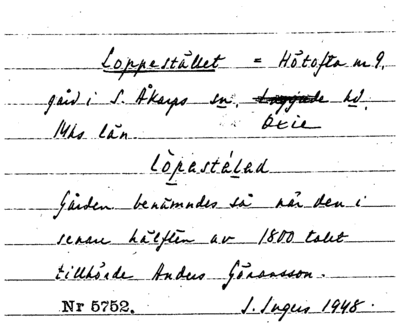 Loppestållet = Hötofta nr 9.
gård i S. Åkarps sn. hd.
Oxie
Mhs län
Gården benämndes så när den i
senare hälften av 1800 talet
tillhörde Anders Göransson.
Nr 5752. J. Ingers 1948.